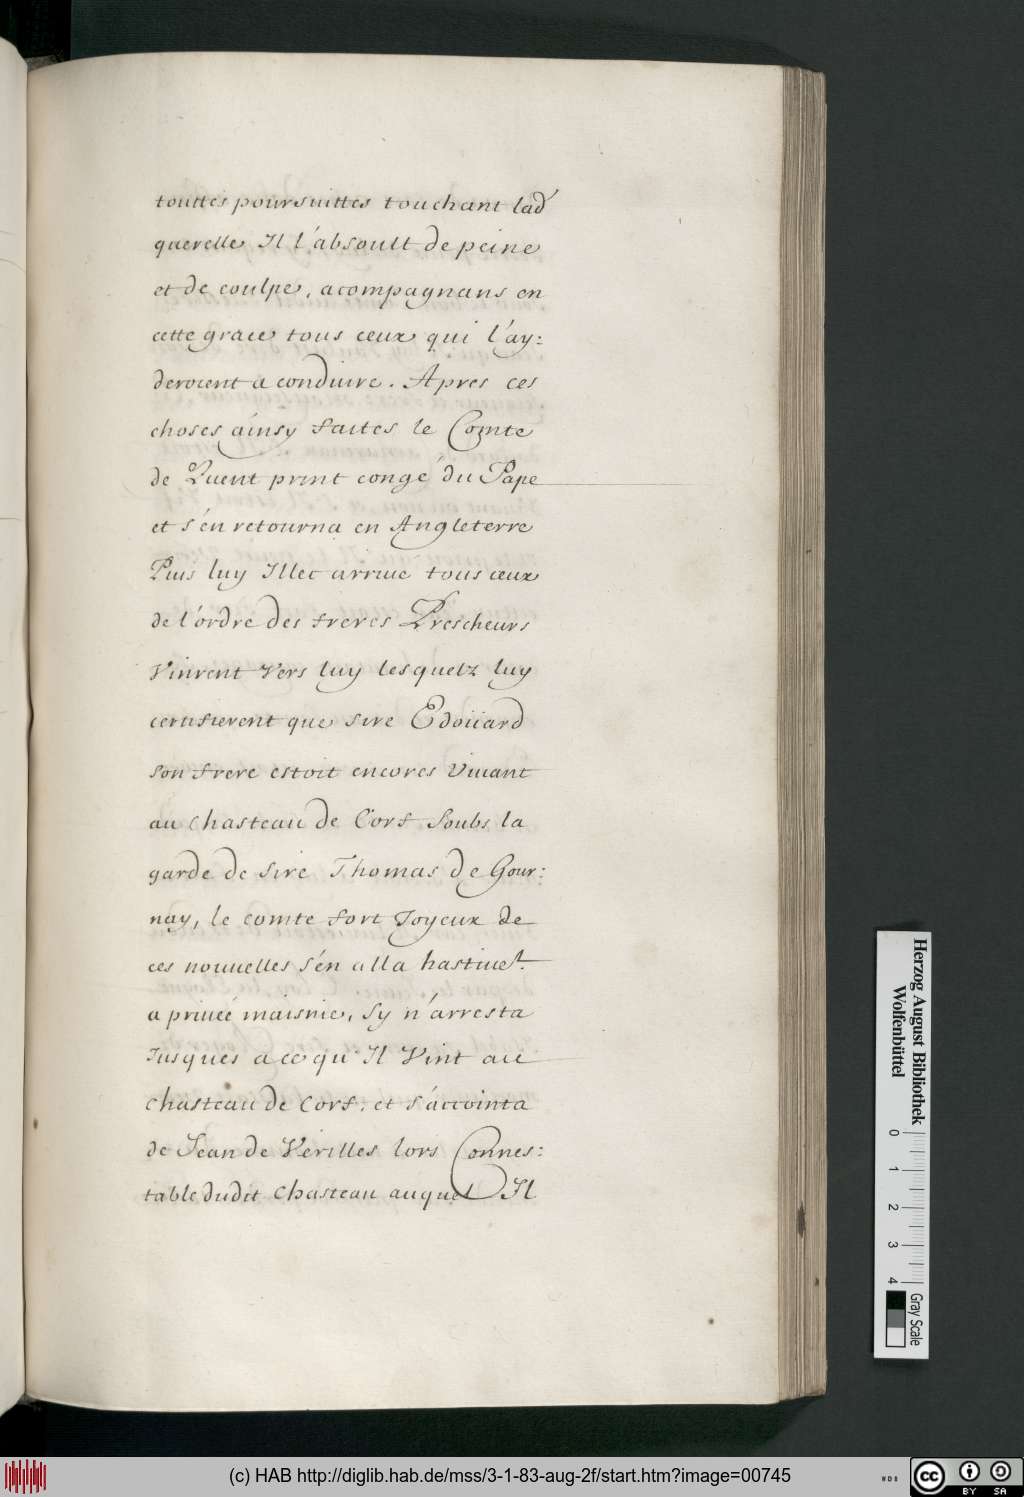 touttes poursuittes touchant lad
querelle Il l'absoult de peine
et de coulpe, acompagnans en
cette grace tous ceux qui l'ay:
deroient a conduire. Apres ces
choses ainsy faites le Comte
de Quent print congé du Pape
et s'en retourna en Angleterre
Puis luy Illec arriué tous ceux
de l'ordre des freres Prescheurs
Vinrent Vers luy lesquelz luy
certifierent que sire Edoüard
son frere estoit encores Viuant
au chasteau de Corf soubs la
garde de sire Thomas de Gour:
nay, le comte fort Joyeux de
ces nouuelles s'en alla hastiuet.
a priuée maisnie, sy n'arresta
Jusques a ce qu'Il Vint au
chasteau de Corf, et s'accointa
de Jean de Verilles lors Connes:
table dudit Chasteau auquel Il
Herzog August Bibliothek
Wolfenbüttel
0 1 2 3 4
Gray Scale
(c) HAB http://diglib.hab.de/mss/3-1-83-aug-2f/start.htm?image=00745
WDB
cc BY SA